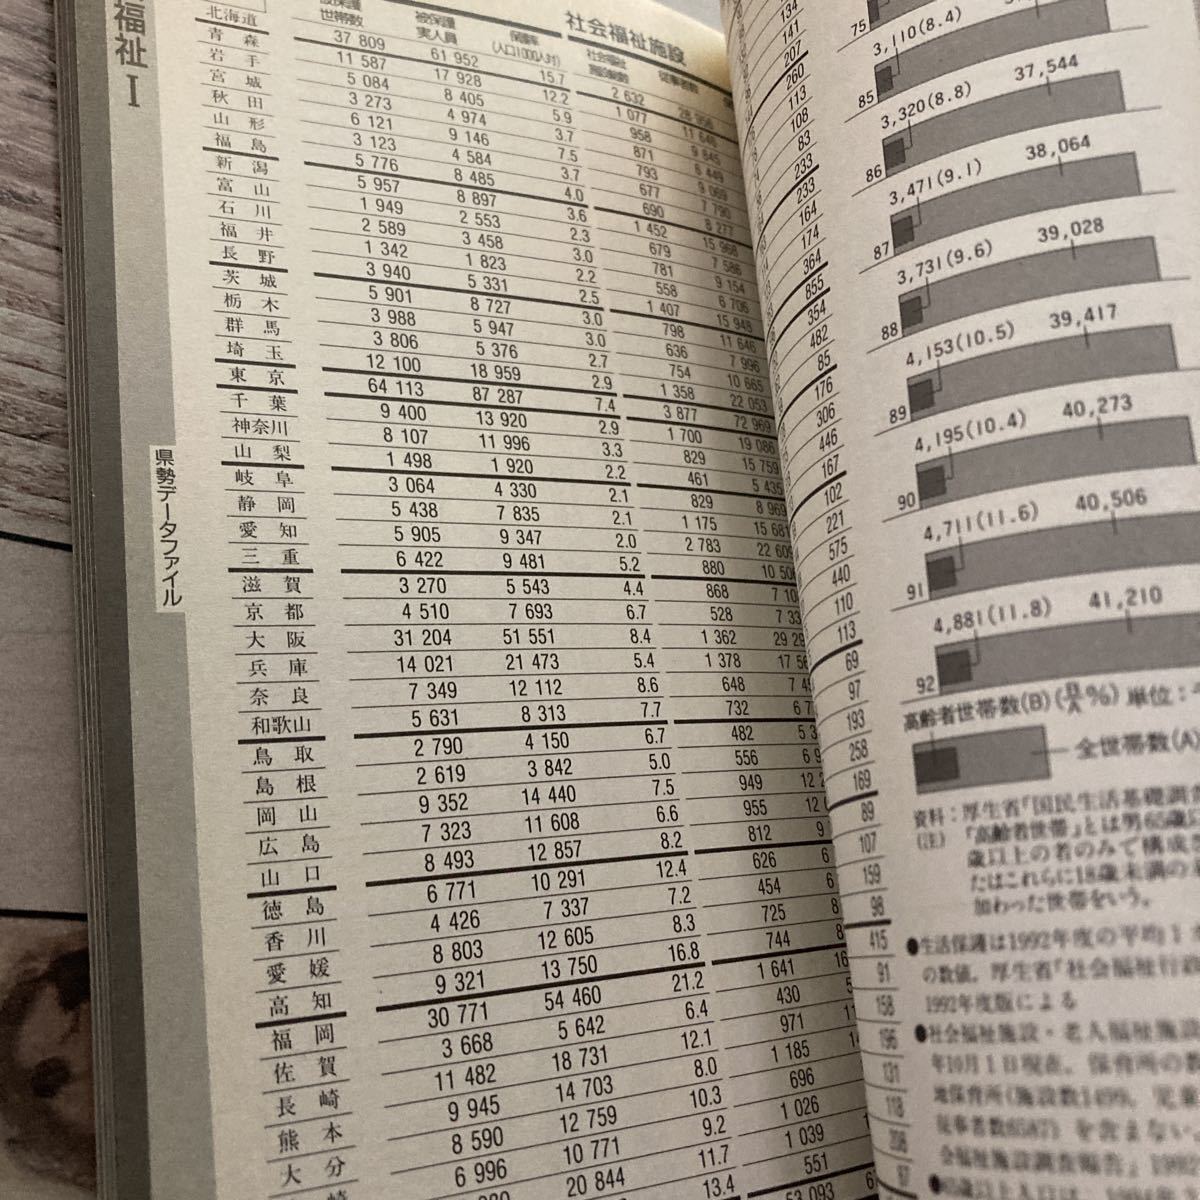 福祉 I
県勢データファイル
社会福祉施設
世帯数 実人員 (人口1000人対)
北海道 37 809 61 952 15.7 2 632
青森 11 587 17 928 12.2 1 077 11 646
岩手 5 084 8 405 5.9 958 9 845
宮城 3 273 4 974 3.7 871 6 449
秋田 6 121 9 146 7.5 793 9 069
山形 3 123 4 584 3.7 677 7 790
福島 5 776 8 485 4.0 690 8 277
新潟 5 957 8 897 3.6 1 452 15 968
富山 1 949 2 553 2.3 679 7 586
石川 2 589 3 458 3.0 781 9 154
福井 1 342 1 823 2.2 558 6 706
長野 3 940 5 331 2.5 1 407 15 948
茨城 5 901 8 727 3.0 798 11 646
栃木 3 988 5 947 3.0 636 7 996
群馬 3 806 5 376 2.7 754 10 665
埼玉 12 100 18 959 2.9 1 358 22 053
東京 64 113 87 287 7.4 3 877 72 969
千葉 9 400 13 920 2.9 1 700 19 086
神奈川 8 107 11 996 3.3 829 15 759
山梨 1 498 1 920 2.2 461 5 435
岐阜 3 064 4 330 2.1 829 8 969
静岡 5 438 7 835 2.1 1 175 15 681
愛知 5 905 9 347 2.0 2 783 22 609
三重 6 422 9 481 5.2 880
滋賀 3 270 5 543 4.4 868
京都 4 510 7 693 6.7 528
大阪 31 204 51 551 8.4 1 362
兵庫 14 021 21 473 5.4 1 378
奈良 7 349 12 112 8.6 648
和歌山 5 631 8 313 7.7 732
鳥取 2 790 4 150 6.7 482
島根 2 619 3 842 5.0 556
岡山 9 352 14 440 7.5 949
広島 7 323 11 608 6.6 955
山口 8 493 12 857 8.2 812
徳島 6 771 10 291 12.4 626
香川 4 426 7 337 7.2 454
愛媛 8 803 12 605 8.3 725
高知 9 321 13 750 16.8 744
福岡 30 771 54 460 21.2 1 641
佐賀 3 668 5 642 6.4 430
長崎 11 482 18 731 12.1 971
熊本 9 945 14 703 8.0 1 185
大分 8 590 12 759 10.3 696
6 996 10 771 9.2 1 026
20 844 11.7 1 039
13.4 551
134
141
207
260
113
108
83
233
233
164
174
364
855
354
482
85
176
306
446
167
102
221
575
440
110
113
69
97
193
258
169
89
107
159
98
415
91
158
196
131
118
206
97
75 3,110(8.4)
85 3,320(8.8) 37,544
86 3,471(9.1) 38,064
87 3,731(9.6) 39,028
88 4,153(10.5) 39,417
89 4,195(10.4) 40,273
90 4,711(11.6) 40,506
91 4,881(11.8) 41,210
92
高齢者世帯数(B) (B/A%) 単位:
全世帯数(A)
資料:厚生省「国民生活基礎調査
(注) 「高齢者世帯」とは男65歳
歳以上の者のみで構成さ
たはこれらに18歳未満の
加わった世帯をいう。
●生活保護は1992年度の平均1
の数値。厚生省「社会福祉行政
1992年度版による
●社会福祉施設・老人福祉施設
年10月1日現在。保育所の数
地保育所(施設数1499、児童
従事者数6587)を含まない
会福祉施設調査報告」1992